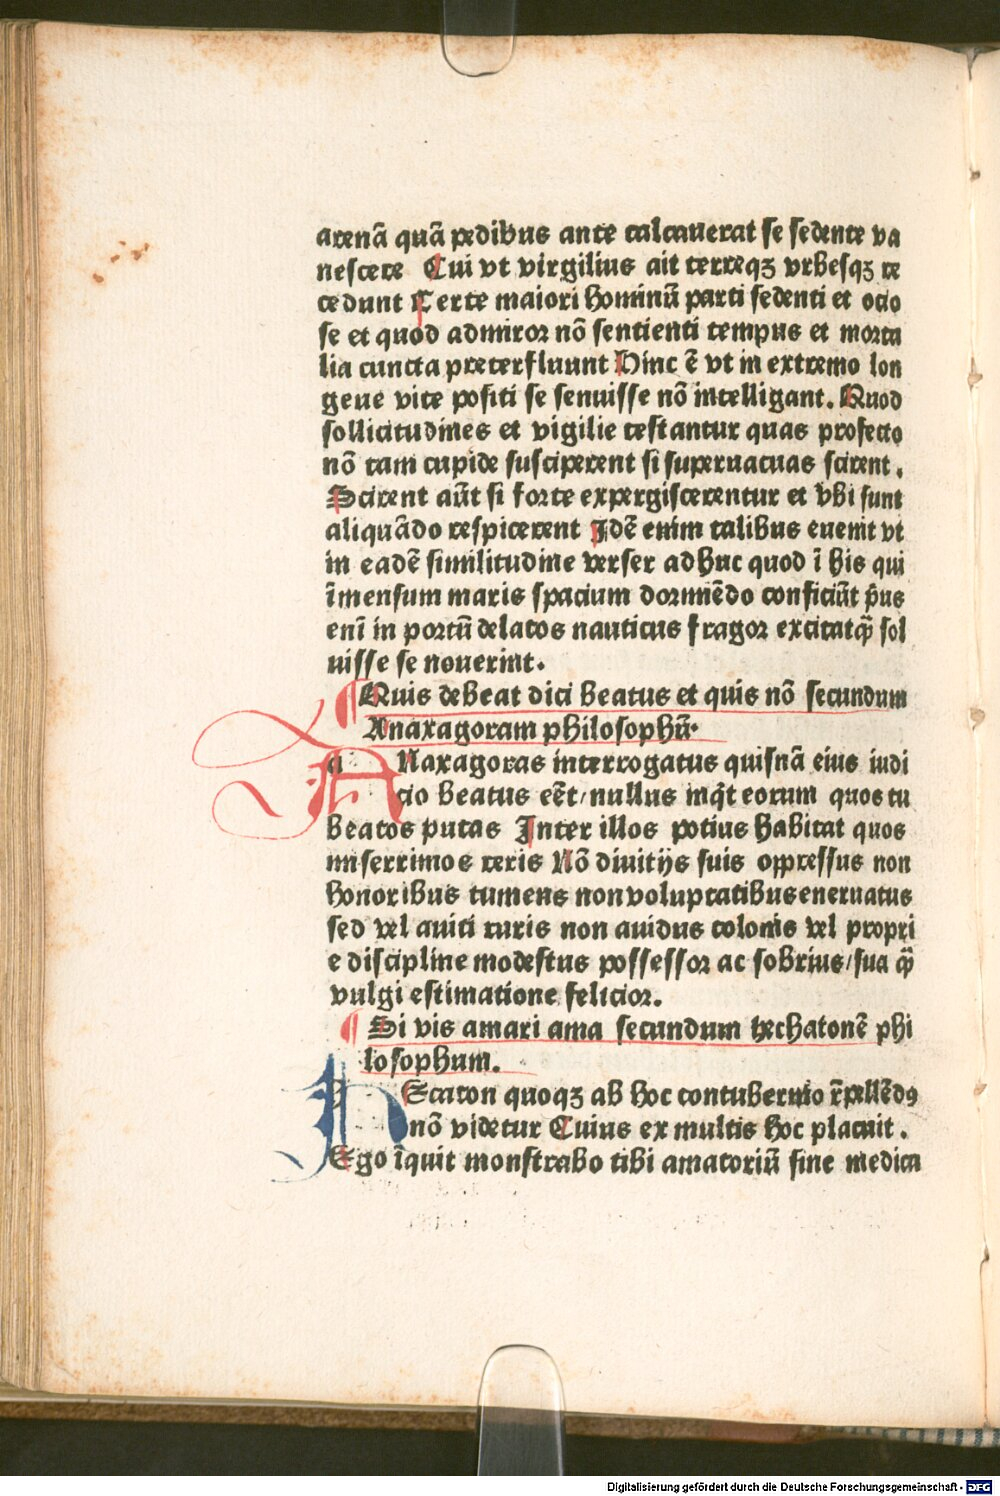 arenā quā pedibus ante calcauerat se sedente va
nescere Cui vt virgilius ait terreqʒ vrbesqʒ re
cedunt Certe maiori hominū parti sedenti et ocio
se et quod admiror nō sentienti tempus et morta
lia cuncta preterfluunt Hinc ē vt in extremo lon
geue vite positi se senuisse nō intelligant. Quod
sollicitudines et vigilie testantur quas profecto
nō tam cupide susciperent si superuacuas scirent.
Scirent aūt si forte expergiscerentur et vbi sunt
aliquādo respicerent Idē enim talibus euenit vt
in eadē similitudine verser adhuc quod ī his qui
īmensum maris spacium dormiēdo conficiūt p̄us
enī in portū delatos nauticus fragor excitatq̄ sol
uisse se nouerint.
¶ Quis debeat dici beatus et quis nō secundum
Anaxagoram philosophū.
aNaxagoras interrogatus quisnā eius iudi
cio beatus eēt/nullus inq̄t eorum quos tu
beatos putas Inter illos potius habitat quos
miserrimos reris Nō diuitijs suis oppressus non
honoribus tumens non voluptatibus eneruatus
sed vel auiti ruris non auidus colonis vel propri
e discipline modestus possessor ac sobrius/sua q̄
vulgi estimatione felicior.
¶ Si vis amari ama secundum hechatonē phi
losophum.
hEcaton quoqʒ ab hoc contubernio r̄pellēdꝰ
nō videtur Cuius ex multis hoc placuit.
Ego īquit monstrabo tibi amatoriū sine medica
Digitalisierung gefördert durch die Deutsche Forschungsgemeinschaft - DFG